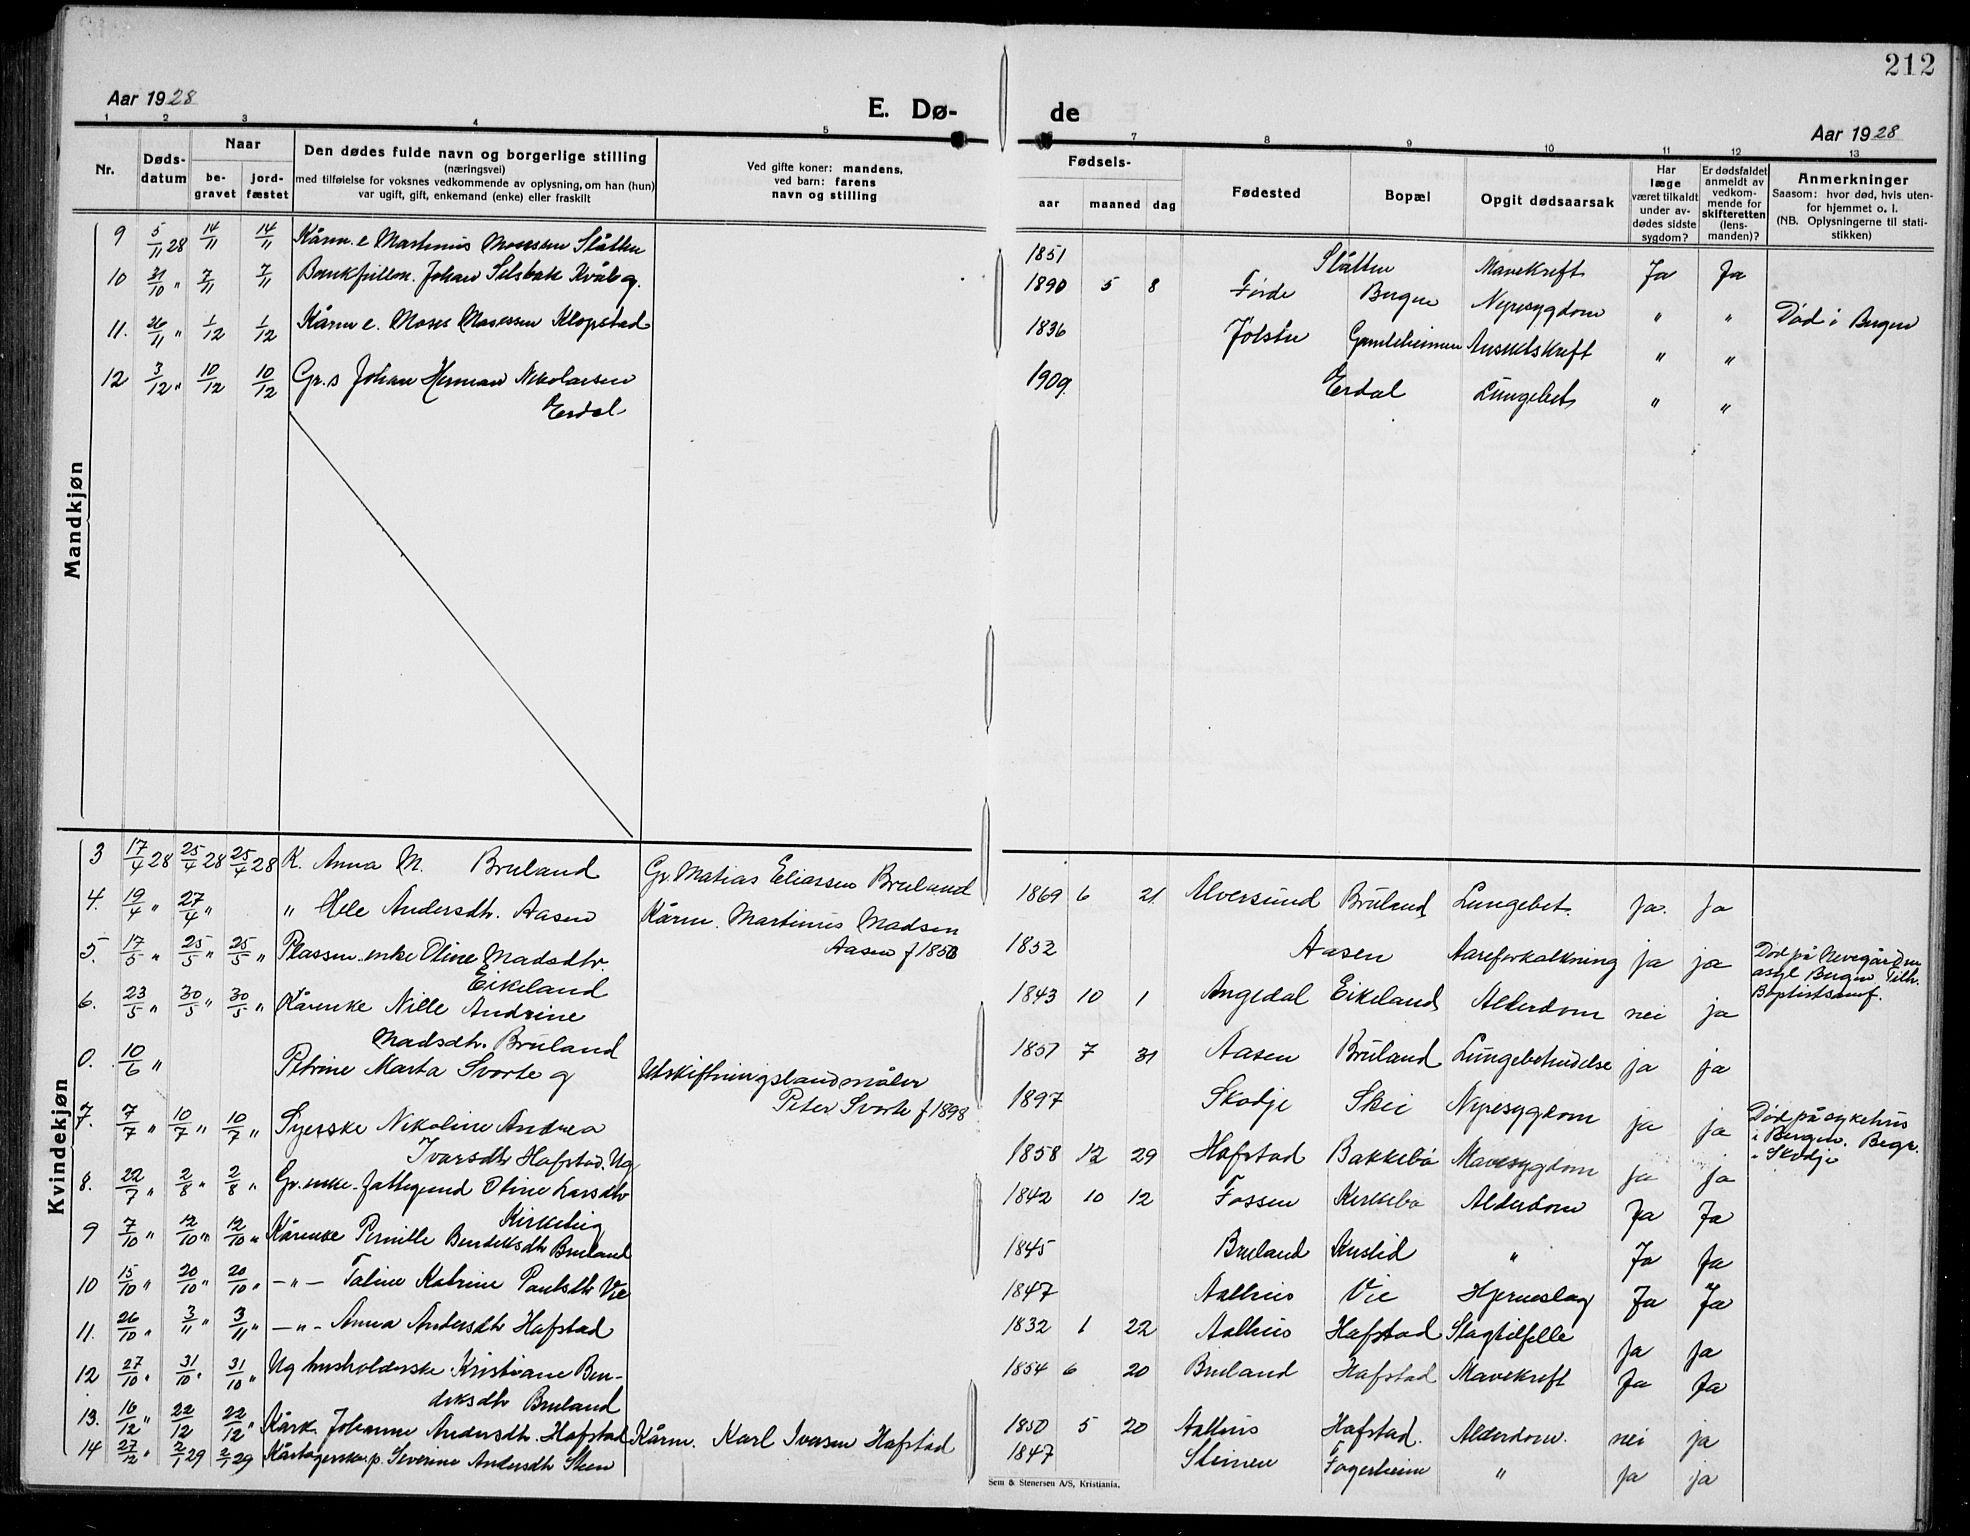 212
Aar 1928
E. Dø-
de
Aar 1928
1 2 3 4 5 6 7 8 9 10 11 12 13
Nr.
Døds-
datum
Naar
be-
gravet
jord-
fæstet
Den dødes fulde navn og borgerlige stilling
(næringsvei)
med tilføielse for voksnes vedkommende av oplysning, om han (hun)
var ugift, gift, enkemand (enke) eller fraskilt
Ved gifte koner: mandens,
ved barn: farens
navn og stilling
Fødsels-
aar maaned dag
Fødested
Bopæl
Opgit dødsaarsak
Har
læge
været tilkaldt
under av-
dødes sidste
sygdom?
Er dødsfaldet
anmeldt av
vedkom-
mende for
skifteretten
(lens-
manden)?
Anmerkninger
Saasom: hvor død, hvis uten-
for hjemmet o. l.
(NB. Oplysningerne til stati-
stikken)
Mandkjøn
9 5/11 28 14/11 14/11 Kårm. e Martinus Mosessen Slåtten 1851 Slåtten Mavekreft Ja Ja
10 31/10 " 7/11 7/11 Johan Selsbak Kvåle g. 1890 5 8 Førde Bergen Nyresygdom " " Død i Bergen
11. 26/11 " 1/12 1/12 Kårm e. Moses Mosessen Klopstad 1836 Jølster Gamleheimen Ansiktskreft " "
12 3/12 " 10/12 10/12 Gr.s Johan Herman Nikolaisen
Erdal 1909 Erdal Lungebet. " "
Kvindekjøn
3 17/4 28 25/4 28 25/4 28 K. Anna M. Bruland Gr. Matias Eliassen Bruland 1869 6 21 Alversund Bruland Lungebet. Ja. Ja
4. 19/4 " 27/4 " " Hele Andersdtr. Aasen Kårm. Martinus Madsen
Aasen f 1850 1852 Aasen Aareforkalkning ja ja
5. 17/5 " 25/5 " 25/5 " Plassm. enke Oline Madsdtr.
Eikeland 1843 10 1 Angedal Eikeland Alderdom nei ja Død på Nevegården
asyl Bergen Tilh.
Baptistsamf.
6. 23/5 " 30/5 " 30/5 " Kårenke Nille Andrine
Madsdtr. Bruland 1857 7 31 Aasen Bruland Lungebetendelse ja ja
0. 10/6 " Petrine Marta Svorte g Utskiftningslandmåler
Peter Svorte f 1898 1897 Skodje Skei Nyresygdom ja ja Død på sykehus
i Bergen. Begr.
i Skodje
7. 7/7 " 10/7 " 10/7 " Syerske Nikoline Andrea
Ivarsdtr Hafstad. Ug 1858 12 29 Hafstad Bakkebø Mavesygdom ja ja
8. 22/7 " 2/8 " 2/8 " Gr. enke. fattigund Oline Larsdtr
Kirkebø 1842 10 12 Fossen Kirkebø Alderdom Ja Ja
9 7/10 " 12/10 " 12/10 " Kårenke Pernille Bendiksdtr Bruland 1845 Bruland Kuslid " Ja Ja
10 15/10 " 20/10 " 20/10 " — " — Taline Katrine Paulsdtr Vie 1847 Aalhus Vie Hjerneslag Ja Ja
11. 26/10 " 3/11 " 3/11 " — " — Anna Andersdtr Hafstad 1832 1 22 Aalhus Hafstad Slagtilfelle Ja Ja
12 27/10 " 31/10 " 31/10 " Ug husholderske Kristiane Ben-
diksdtr Bruland 1854 6 20 Bruland Hafstad Mavekreft Ja Ja
13. 16/12 " 22/12 22/12 " Kårk. Johanne Andersdtr. Hafstad Kårm. Karl Iversen Hafstad 1850 5 20 Aalhus Hafstad. Alderdom. nei ja
14 27/12 " 2/1 29 2/1 29 Severine Andersdtr Steen 1847 Stimen Fagerheim " Ja ja
Sem & Stenersen A/S, Kristiania.